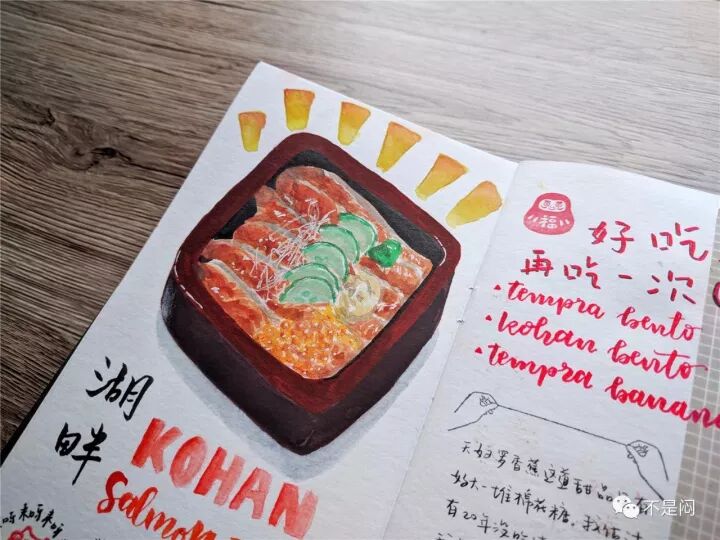 湖
畔
KOHAN
Salmon
福
好吃
再吃一次
• tempra bento
• kohan bento
• tempra banana
天妇罗香蕉这道甜品
好大一堆棉花糖,我估计
有20年没吃过
不是闷